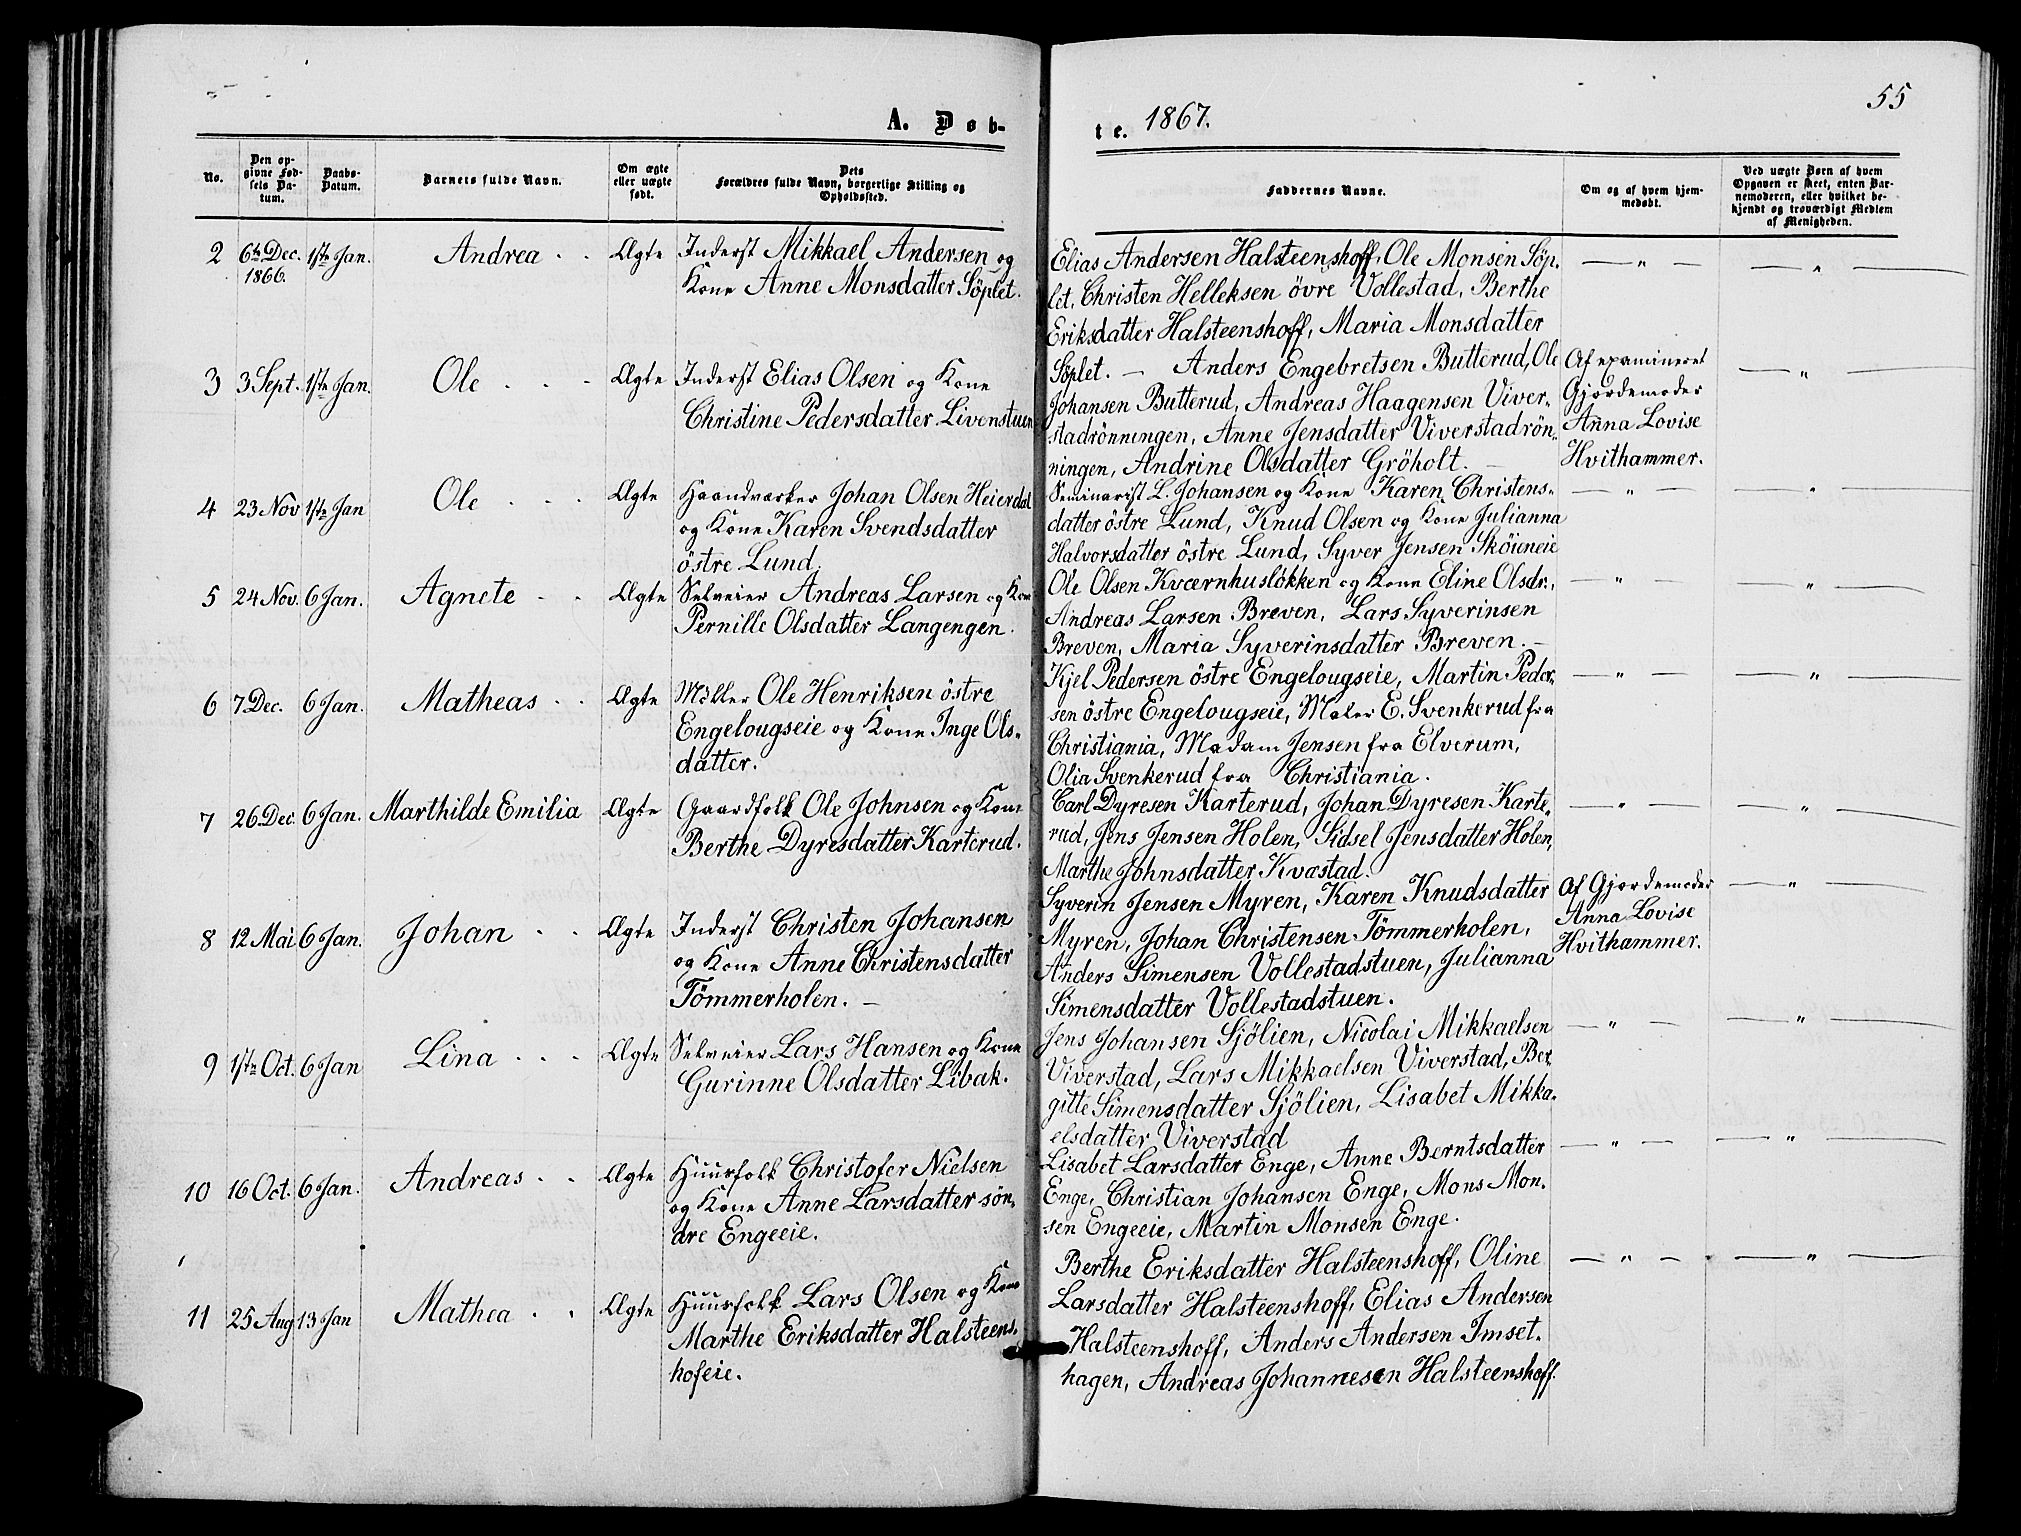 55
A. Døb-
te. 1867.
No.
Den op-
givne Fød-
sels Da-
tum.
Daabs-
Datum.
Barnets fulde Navn.
Om ægte
eller uægte
født.
Dets
Forældres fulde Navn, borgerlige Stilling og
Opholdssted.
Faddernes Navne.
Om og af hvem hjem-
medøbt.
Ved uægte Børn af hvem
Opgaven er skeet, enten Bar-
nemoderen, eller hvilket be-
kjendt og troværdigt Medlem
af Menigheden.
2 6te Dec. 1ste Jan. Andrea Ægte Inderst Mikkael Andersen og
1866. Kone Anne Monsdatter Söplet.
Elias Andersen Halsteenshoff, Ole Monsen Söp-
let, Christen Helleksen övre Vollestad, Berthe
Eriksdatter Halsteenshoff, Maria Monsdatter
Söplet. —
3 3 Sept. 1ste Jan. Ole Ægte Inderst Elias Olsen og Kone
Christine Pedersdatter Livenstuen
Anders Engebretsen Butterud, Ole
Johansen Butterud, Andreas Haagensen Viver-
stadrönningen, Anne Jensdatter Viverstadrön-
ningen, Andrine Olsdatter Gröholt. —
Af examineret
Gjordemoder
Anna Lovise
Hvithammer.
4 23 Nov 1ste Jan Ole Ægte Haandværker Johan Olsen Heierdal
og Kone Karen Svendsdatter
östre Lund.
Seminarist L. Johansen og Kone Karen Christens-
datter östre Lund, Knud Olsen og Kone Julianna
Halvorsdatter östre Lund, Syver Jensen Sköieneie
5 24 Nov. 6 Jan. Agnete Ægte Selveier Andreas Larsen og Kone
Pernille Olsdatter Langengen.
Ole Olsen Kværnhuslökken og Kone Eline Olsdr.,
Andreas Larsen Breven, Lars Syverinsen
Breven, Maria Syverinsdatter Breven. —
6 7 Dec. 6 Jan. Matheas Ægte Möller Ole Henriksen östre
Engelougseie og Kone Inge Ols-
datter.
Kjel Pedersen östre Engelougseie, Martin Peder-
sen östre Engelougseie, Maler E. Svenkerud fra
Christiania, Madam Jensen fra Elverum,
Olia Svenkerud fra Christiania.
7 26 Dec. 6 Jan. Marthilde Emilia Ægte Gaardfolk Ole Johnsen og Kone
Berthe Dyresdatter Karterud.
Carl Dyresen Karterud, Johan Dyresen Karte-
rud, Jens Jensen Holen, Sidsel Jensdatter Holen,
Marthe Johnsdatter Kvæstad.
8 12 Mai 6 Jan. Johan Ægte Inderst Christen Johansen
og Kone Anne Christensdatter
Tömmerholen. —
Syverin Jensen Myren, Karen Knudsdatter
Myren, Johan Christensen Tömmerholen,
Anders Simensen Vollestadstuen, Julianna
Simensdatter Vollestadstuen.
Af Gjordemoder
Anna Lovise
Hvithammer.
9 1ste Oct. 6 Jan Lina Ægte Selveier Lars Hansen og Kone
Gurinne Olsdatter Libak.
Jens Johansen Sjölien, Nicolai Mikkaelsen
Viverstad, Lars Mikkaelsen Viverstad, Ber-
gitte Simensdatter Sjölien, Lisabet Mikka-
elsdatter Viverstad
10 16 Oct. 6 Jan. Andreas Ægte Huusfolk Christofer Nielsen
og Kone Anne Larsdatter sön-
dre Engeeie.
Lisabet Larsdatter Enge, Anne Berntsdatter
Enge, Christian Johansen Enge, Mons Mon-
sen Engeeie, Martin Monsen Enge.
11 25 Aug 13 Jan Mathea Ægte Huusfolk Lars Olsen og Kone
Marthe Eriksdatter Halsteens-
hofeie.
Berthe Eriksdatter Halsteenshoff, Oline
Larsdatter Halsteenshoff, Elias Andersen
Halsteenshoff, Anders Andersen Imset-
hagen, Andreas Johannesen Halsteenshoff.